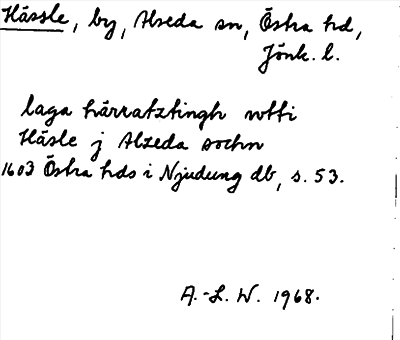 Hässle, by, Alseda sn, Östra hd,
Jönk. l.
laga härratztingh vtti
Häsle j Alzeda sochn
1603 Östra hds i Njudung db, s. 53.
A.-L. W. 1968.